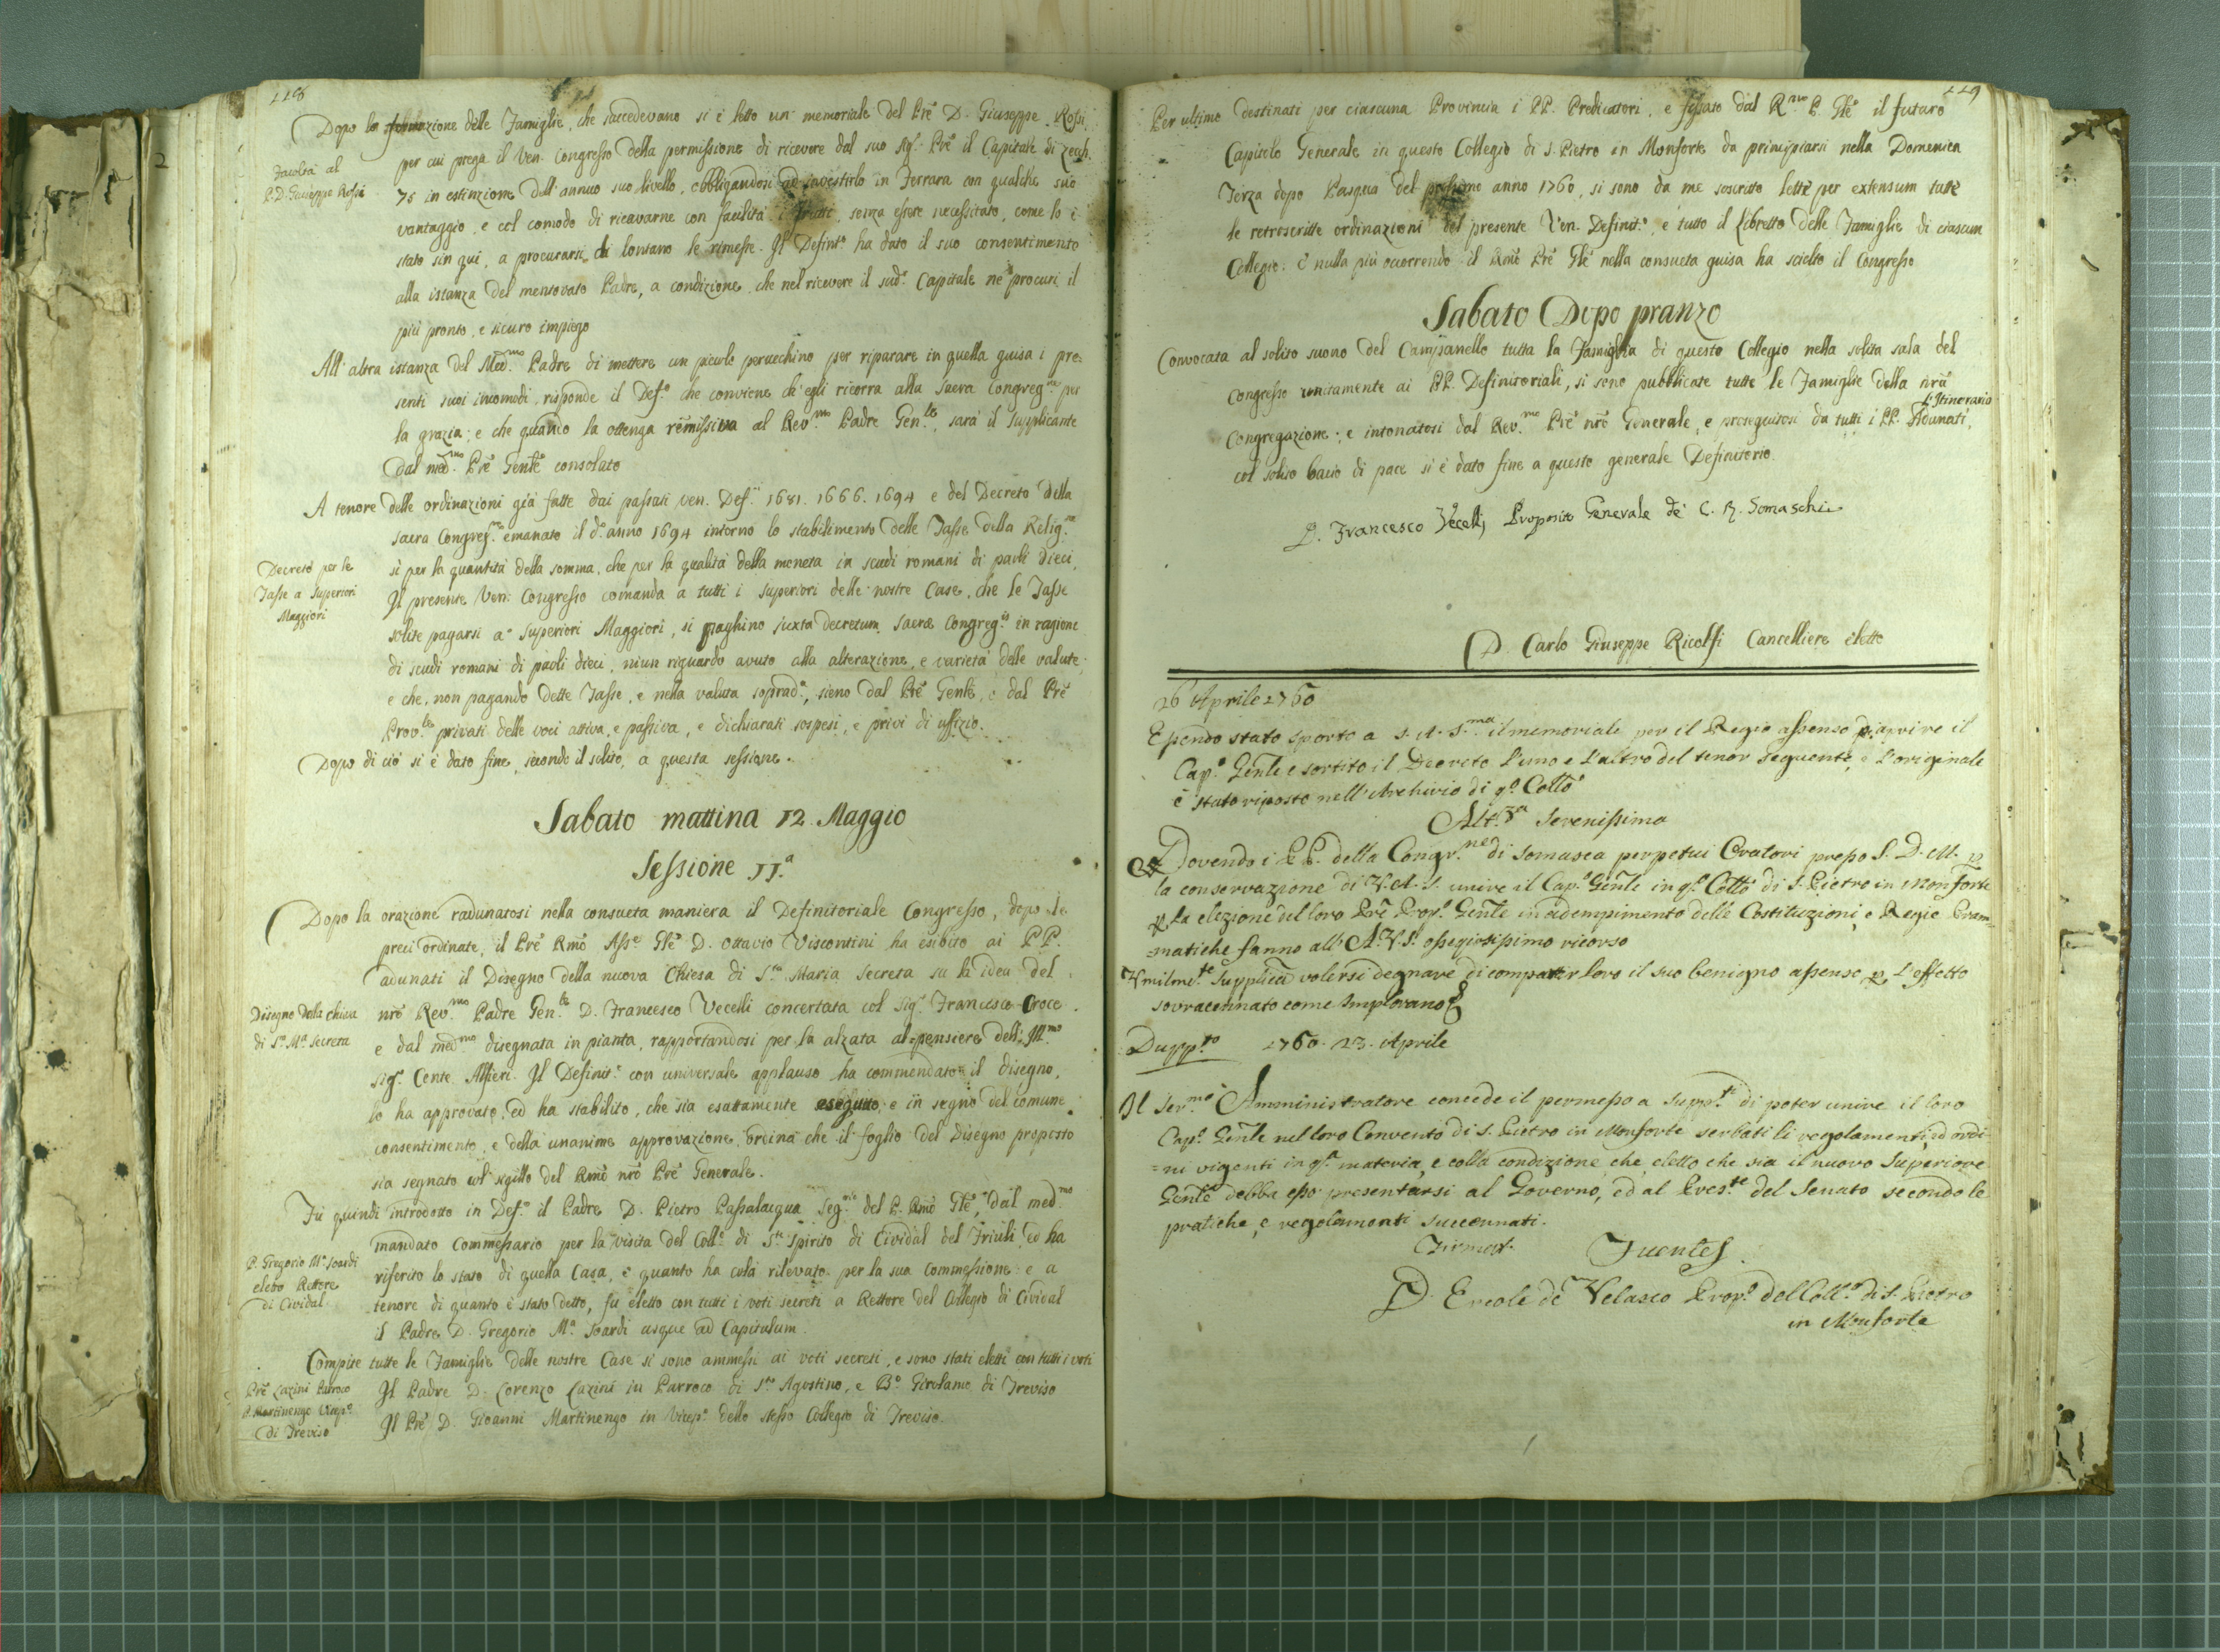 118
Dopo la formazione delle Famiglie, che succedevano si è letto un memoriale del Prê D. Giuseppe Rossi,
Facoltà al
P. D. Giuseppe Rossi
per cui prega il Ven. Congresso della permissione di ricevere dal suo Sigr. Prê il Capitale di Zecch.
75 in estinzione dell'annuo suo livello, obbligandosi ad investirlo in Ferrara con qualche suo
vantaggio, e col comodo di ricavarne con facilità i frutti, senza essere necessitato, come lo è
stato sin qui, a procurarsi di lontano le rimesse. Il Definto. ha dato il suo consentimento
alla istanza del mentovato Padre, a condizione, che nel ricevere il sudo. Capitale ne procuri il
più pronto, e sicuro impiego
All'altra istanza del Medmo. Padre di mettere un picolo peruchino per riparare in quella guisa i pre-
senti suoi incomodi, risponde il Defo. che conviene ch'egli ricorra alla Sacra Congregne. per
la grazia; e che quando la ottenga remissiva al Revmo. Padre Genle., sarà il supplicante
dal medmo. Prê Genlê consolato
A tenore delle ordinazioni già fatte dai passati Ven. Defii. 1681. 1666. 1694 e del Decreto della
Sacra Congregne. emanato il do. anno 1694 intorno lo stabilimento delle Tasse della Religne.
Decreto per le
Tasse a Superiori
Maggiori
sì per la quantità della somma, che per la qualità della moneta in scudi romani di paoli dieci,
Il presente Ven. Congresso comanda a tutti i superiori delle nostre Case, che le Tasse
solite pagarsi a' Superiori Maggiori, si paghino juxta decretum Sacræ Congregis. in ragione
di scudi romani di paoli dieci, niun riguardo avuto alla alterazione, e varietà delle valute;
e che, non pagando dette Tasse, e nella valuta sopradª, sieno dal Prê Genlê, o dal Prê
Provle. privati delle voci attiva, e passiva, e dichiarati sospesi, e privi di uffizio.
Dopo di ciò si è dato fine, secondo il solito, a questa sessione.
Sabato mattina 12 Maggio
Sessione 11.ª
Dopo la orazione radunatosi nella consueta maniera il Definitoriale Congresso, dopo le
preci ordinate, il Prê Rmô Asse. Glê D. Ottavio Viscontini ha esibito ai PP.
adunati il Disegno della nuova Chiesa di Sta. Maria Secreta su la idea del
Disegno della chiesa
di Sta. Ma. Secreta
nrô Revmo. Padre Genle. D. Francesco Vecelli concertata col Sigr. Francesco Croce
e dal medmo. disegnata in pianta, rapportandosi per la alzata al pensiere dell'Illmo.
Sigr. Conte Alfieri. Il Definito. con universale applauso ha commendato il disegno,
lo ha approvato, ed ha stabilito, che sia esattamente eseguito, e in segno del comune
consentimento, e della unanime approvazione, ordina che il foglio del Disegno proposto
sia segnato col sigillo del Rmô nrô Prê Generale.
Fù quindi introdotto in Defo. il Padre D. Pietro Passalacqua Segrio. del P. Rmô Glê, dal medmo.
mandato Commessario per la visita del Collo. di Sto. Spirito di Cividal del Friuli, ed ha
P. Gregorio Mª. Soardi
eletto Rettore
di Cividal.
riferito lo stato di quella Casa, e quanto ha colà rilevato per la sua Commessione: e a
tenore di quanto è stato detto, fu eletto con tutti i voti secreti a Rettore del Collegio di Cividal
il Padre D. Gregorio Mª. Soardi usque ad Capitulum.
Compite tutte le Famiglie delle nostre Case si sono ammessi ai voti secreti, e sono stati eletti con tutti i voti
Prê Lazini Parroco
P. Martinengo Vicepo.
di Treviso
Il Padre D. Lorenzo Lazini in Parroco di Sto. Agostino, e Bo. Girolamo di Treviso
Il Prê D. Gioanni Martinengo in Vicepo. dello stesso Collegio di Treviso.
119
Per ultimo destinati per ciascuna Provincia i PP. Predicatori, e fissato dal Rmo P. Glê il futuro
Capitolo Generale in questo Collegio di S. Pietro in Monforte da principiarsi nella Domenica
Terza dopo Pasqua del prossimo anno 1760, si sono da me soscritto lette per extensum tutte
le retroscritte ordinazioni del presente Ven. Definito., e tutto il Libretto delle Famiglie di ciascun
Collegio: E nulla più occorrendo il Rmô Prê Glê nella consueta guisa ha sciolto il Congresso
Sabato Dopo pranzo
Convocata al solito suono del Campanello tutta la Famiglia di questo Collegio nella solita sala del
Congresso unitamente ai PP. Definitoriali, si sono pubblicate tutte le Famiglie della nrâ
l'Itinerario
Congregazione: e intonatosi dal Revmo. Prê nrô Generale, e proseguitosi da tutti i PP. Adunati,
col solito bacio di pace si è dato fine a questo generale Definitorio.
D. Francesco Vecelli Proposito Generale de' C. R. Somaschi
D. Carlo Giuseppe Ricolfi Cancelliere eletto
26 Aprile 1760
Essendo stato sporto a S. A. Sma. il memoriale per il Regio assenso p. aprire il
Capo. Genle e sortito il Decreto l'uno e l'altro del tenor seguente, e l'originale
è stato riposto nell'Archivio di qo. Collo
Altza. Serenissima
Dovendo i PP. della Congrne. di Somasca perpetui Oratori presso S. D. M. p.
la conservazione di V. A. S. unire il Capo. Genle in qo. Collo di S. Pietro in Monforte
p. la elezione del loro Prê Propo. Genle in adempimento delle Costituzioni, e Regie Pram-
=matiche fanno all'A. V. S. ossequiosissimo ricorso
Umilmte. Supplica volersi degnare di compartir loro il suo benigno assenso p. l'effetto
sovracennato come Implorano &
Duppto 1760. 23. Aprile
Il Sermo. Amministratore concede il permesso a Suppti. di poter unire il loro
Capo. Genle nel loro Convento di S. Pietro in Monforte serbati li regolamenti, ed ordi-
=ni vigenti in qta. materia, e colla condizione che, eletto che sia il nuovo Superiore
Genle debba esso presentarsi al Governo, ed al Preste. del Senato secondo le
pratiche, e regolamenti succennati.
Firmat. Fuentes.
D. Ercole de Velasco Propo. del Collo. di S. Pietro
in Monforte